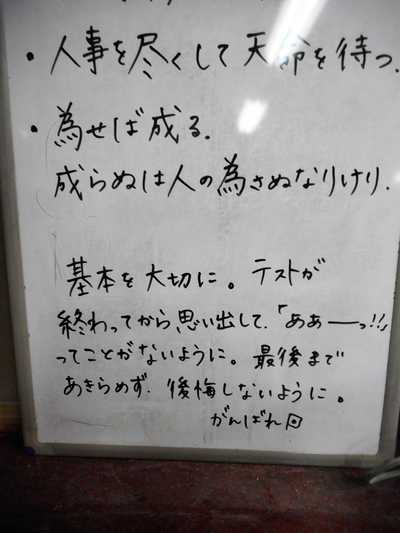 ・人事を尽くして天命を待つ.
・為せば成る.
成らぬは人の為さぬなりけり.
基本を大切に。テストが
終わってから思い出して、「ああーっ!!」
ってことがないように。最後まで
あきらめず、後悔しないように。
がんばれ